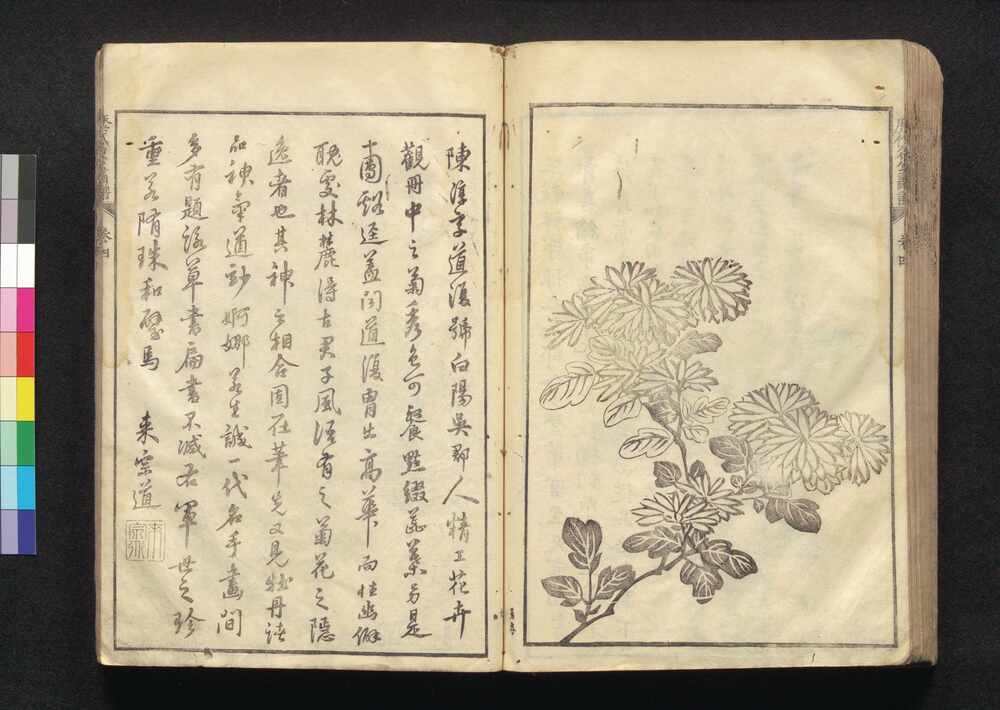 陳淳字道復號白陽吳郡人精工花卉
觀冊中之菊秀色可餐點綴蕊葉另是
十圃谿逕蓋聞道復胄出高華而性幽僻
耽愛林麓得古君子風流有之菊花之隱
逸者也其神之相合固在筆先又見牡丹諸
品神氣遒勁婀娜若生誠一代名手畫間
多有題詠草書扁書不減右軍世之珍
重若隋珠和璧焉
來宗道
卷四
卷四